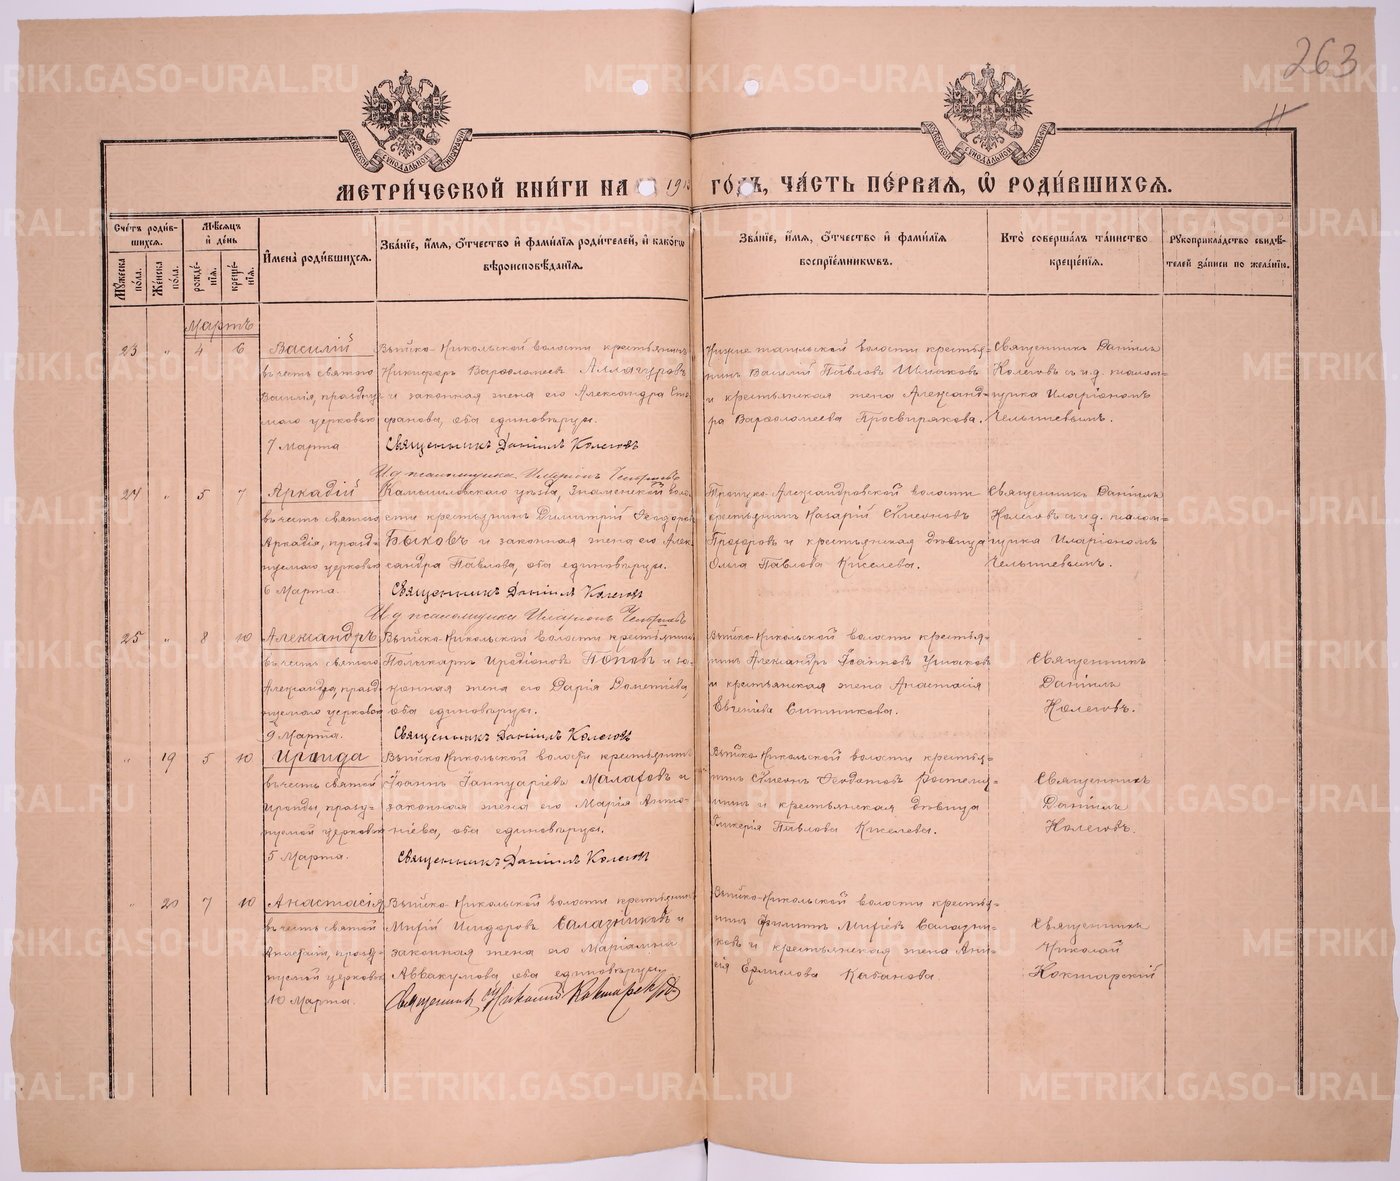 263
МЕТРИ́ЧЕСКОЙ КНИ́ГИ НА 191 ГО́ДЪ, ЧА́СТЬ ПЕ́РВАЯ, Ѡ РОДИ́ВШИХСЯ.
Счетъ родившихся.
Мужеска пола.
Женска пола.
Мѣсяцъ и день
рожденія.
крещенія.
Имена родившихся.
Званіе, имя, отчество и фамилія родителей, и какого вѣроисповѣданія.
Званіе, имя, отчество и фамилія воспріемниковъ.
Кто совершалъ таинство крещенія.
Рукоприкладство свидѣтелей записи по желанію.
Мартъ
23 " 4 6
Василій
въ честь святого
Василія, праздну-
емаго церковью
7 Марта
Выйско-Никольской волости крестьянинъ
Никифоръ Варѳоломеевъ
и законная жена его Александра Сте-
фанова, оба единовѣрцы.
Священникъ Даніилъ Колеговъ
И. д. псаломщика Иларіонъ
Нижне-тагильской волости крестья-
нинъ Василій Павловъ
и крестьянская жена Александ-
ра Варѳоломеева Просвирякова.
Священникъ Даніилъ
Колеговъ съ и. д. псалом-
щика Иларіономъ
Челышевымъ.
24 " 5 7
Аркадій
въ честь святого
Аркадія, празд-
нуемаго церковью
6 Марта.
Камышловскаго уѣзда, Знаменской воло-
сти крестьянинъ Димитрій Ѳеодоровъ
Быковъ и законная жена его Алек-
сандра Павлова, оба единовѣрцы.
Священникъ Даніилъ Колеговъ
И. д. псаломщика Иларіонъ
Троицко-Александровской волости
крестьянинъ Назарій Сѵмеоновъ
Прозоровъ и крестьянская дѣвица
Ольга Павлова Киселева.
Священникъ Даніилъ
Колеговъ съ и. д. псалом-
щика Иларіономъ
Челышевымъ.
25 " 8 10
Александръ
въ честь святого
Александра, празд-
нуемаго церковью
9 Марта.
Выйско-Никольской волости крестьянинъ
Поликарпъ Иродіоновъ Поповъ и за-
конная жена его Дарія Дометіева,
оба единовѣрцы.
Священникъ Даніилъ Колеговъ
Выйско-Никольской волости крестья-
нинъ Александръ Іоанновъ Ушаковъ
и крестьянская жена Анастасія
Евгеніева Ситникова.
Священникъ
Даніилъ
Колеговъ.
" 19 5 10
Ираида
въ честь святой
Ираиды, празд-
нуемой церковью
5 Марта.
Выйско-Никольской волости крестьянинъ
Іоаннъ Іаннуаріевъ Малаховъ и
законная жена его Марія Анто-
ніева, оба единовѣрцы.
Священникъ Даніилъ Колеговъ
Выйско-Никольской волости крестья-
нинъ Сѵмеонъ Ѳеодотовъ
и крестьянская дѣвица
Гликерія Павлова Киселева.
Священникъ
Даніилъ
Колеговъ.
" 20 7 10
Анастасія
въ честь святой
Анастасіи, празд-
нуемой церковью
10 Марта.
Выйско-Никольской волости крестьянинъ
Исидоровъ Салазниковъ и
законная жена его Маріамна
Аввакумова оба единовѣрцы
Священникъ Николай Кокшарскій
Выйско-Никольской волости крестья-
нинъ Филиппъ
и крестьянская жена Ани-
сія Ермилова Кабанова.
Священникъ
Николай
Кокшарский
METRIKI.GASO-URAL.RU